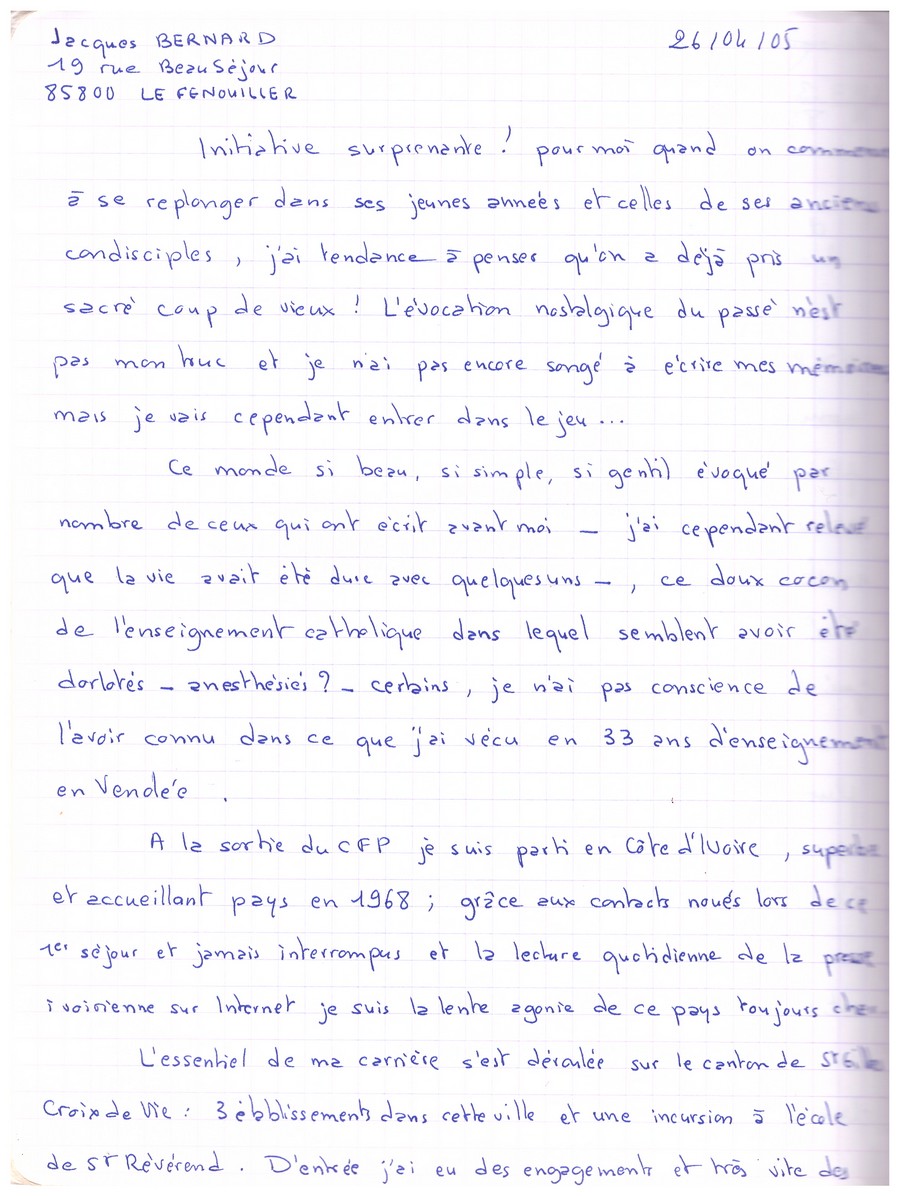 Jacques BERNARD
26/04/05
19 rue Beau Séjour
85800 LE FENOUILLER
Initiative surprenante ! pour moi quand on commence
à se replonger dans ses jeunes années et celles de ses anciens
condisciples, j'ai tendance à penser qu'on a déjà pris un
sacré coup de vieux ! L'évocation nostalgique du passé n'est
pas mon truc et je n'ai pas encore songé à écrire mes mémoires
mais je vais cependant entrer dans le jeu...
Ce monde si beau, si simple, si gentil évoqué par
nombre de ceux qui ont écrit avant moi – j'ai cependant relevé
que la vie avait été dure avec quelques uns –, ce doux cocon
de l'enseignement catholique dans lequel semblent avoir été
dorlotés – anesthésiés ? – certains, je n'ai pas conscience de
l'avoir connu dans ce que j'ai vécu en 33 ans d'enseignement
en Vendée.
A la sortie du CFP je suis parti en Côte d'Ivoire, superbe
et accueillant pays en 1968 ; grâce aux contacts noués lors de ce
1er séjour et jamais interrompus et la lecture quotidienne de la presse
ivoirienne sur Internet je suis la lente agonie de ce pays toujours cher.
L'essentiel de ma carrière s'est déroulée sur le canton de St Gilles
Croix de Vie : 3 établissements dans cette ville et une incursion à l'école
de St Révérend. D'entrée j'ai eu des engagements et très vite des